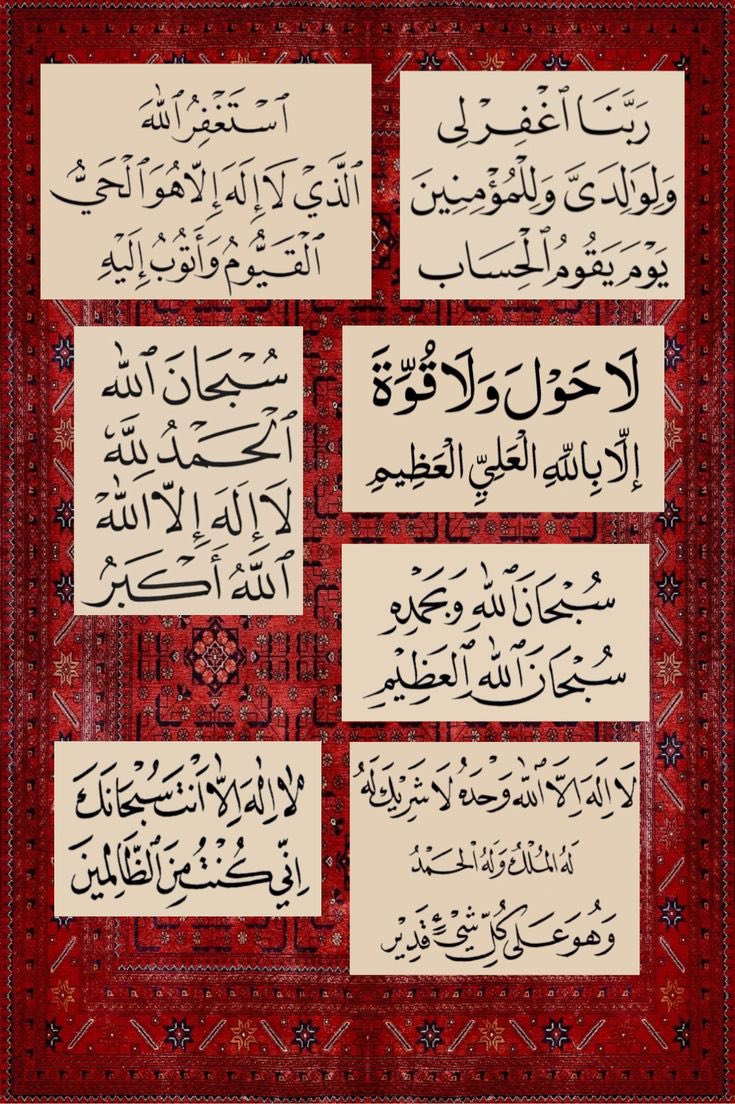 رَبَّنَا ٱغْفِرْ لِى
وَلِوَٰلِدَىَّ وَلِلْمُؤْمِنِينَ
يَوْمَ يَقُومُ ٱلْحِسَاب
ٱسْتَغْفِرُ ٱللَّهَ
ٱلَّذِيْ لَا إِلَهَ إِلَّا هُوَ ٱلْحَيُّ
ٱلْقَيُّومُ وَأَتُوبُ إِلَيْهِ
لَا حَوْلَ وَلَا قُوَّةَ
إِلَّا بِاللَّهِ الْعَلِيِّ الْعَظِيمِ
سُبْحَانَ ٱللَّه
ٱلْحَمْدُ لِلَّهِ
لَا إِلَهَ إِلَّا ٱللَّهُ
ٱللَّهُ أَكْبَرُ
سُبْحَانَ ٱللَّهِ وَبَحَمْدِهِ
سُبْحَانَ ٱللَّهِ ٱلْعَظِيْمِ
لَا إِلَهَ إِلَّا ٱللَّه وَحْدَهُ لَا شَرِيكَ لَهُ
لَهُ الْمُلْكُ وَلَهُ الْحَمْدُ
وَهُوَ عَلَى كُلِّ شَيْءٍ قَدِيْر
لَا إِلَهَ إِلَّا أَنْتَ سُبْحَانَكَ
إِنِّي كُنْتُ مِنَ ٱلظَّالِمِينَ